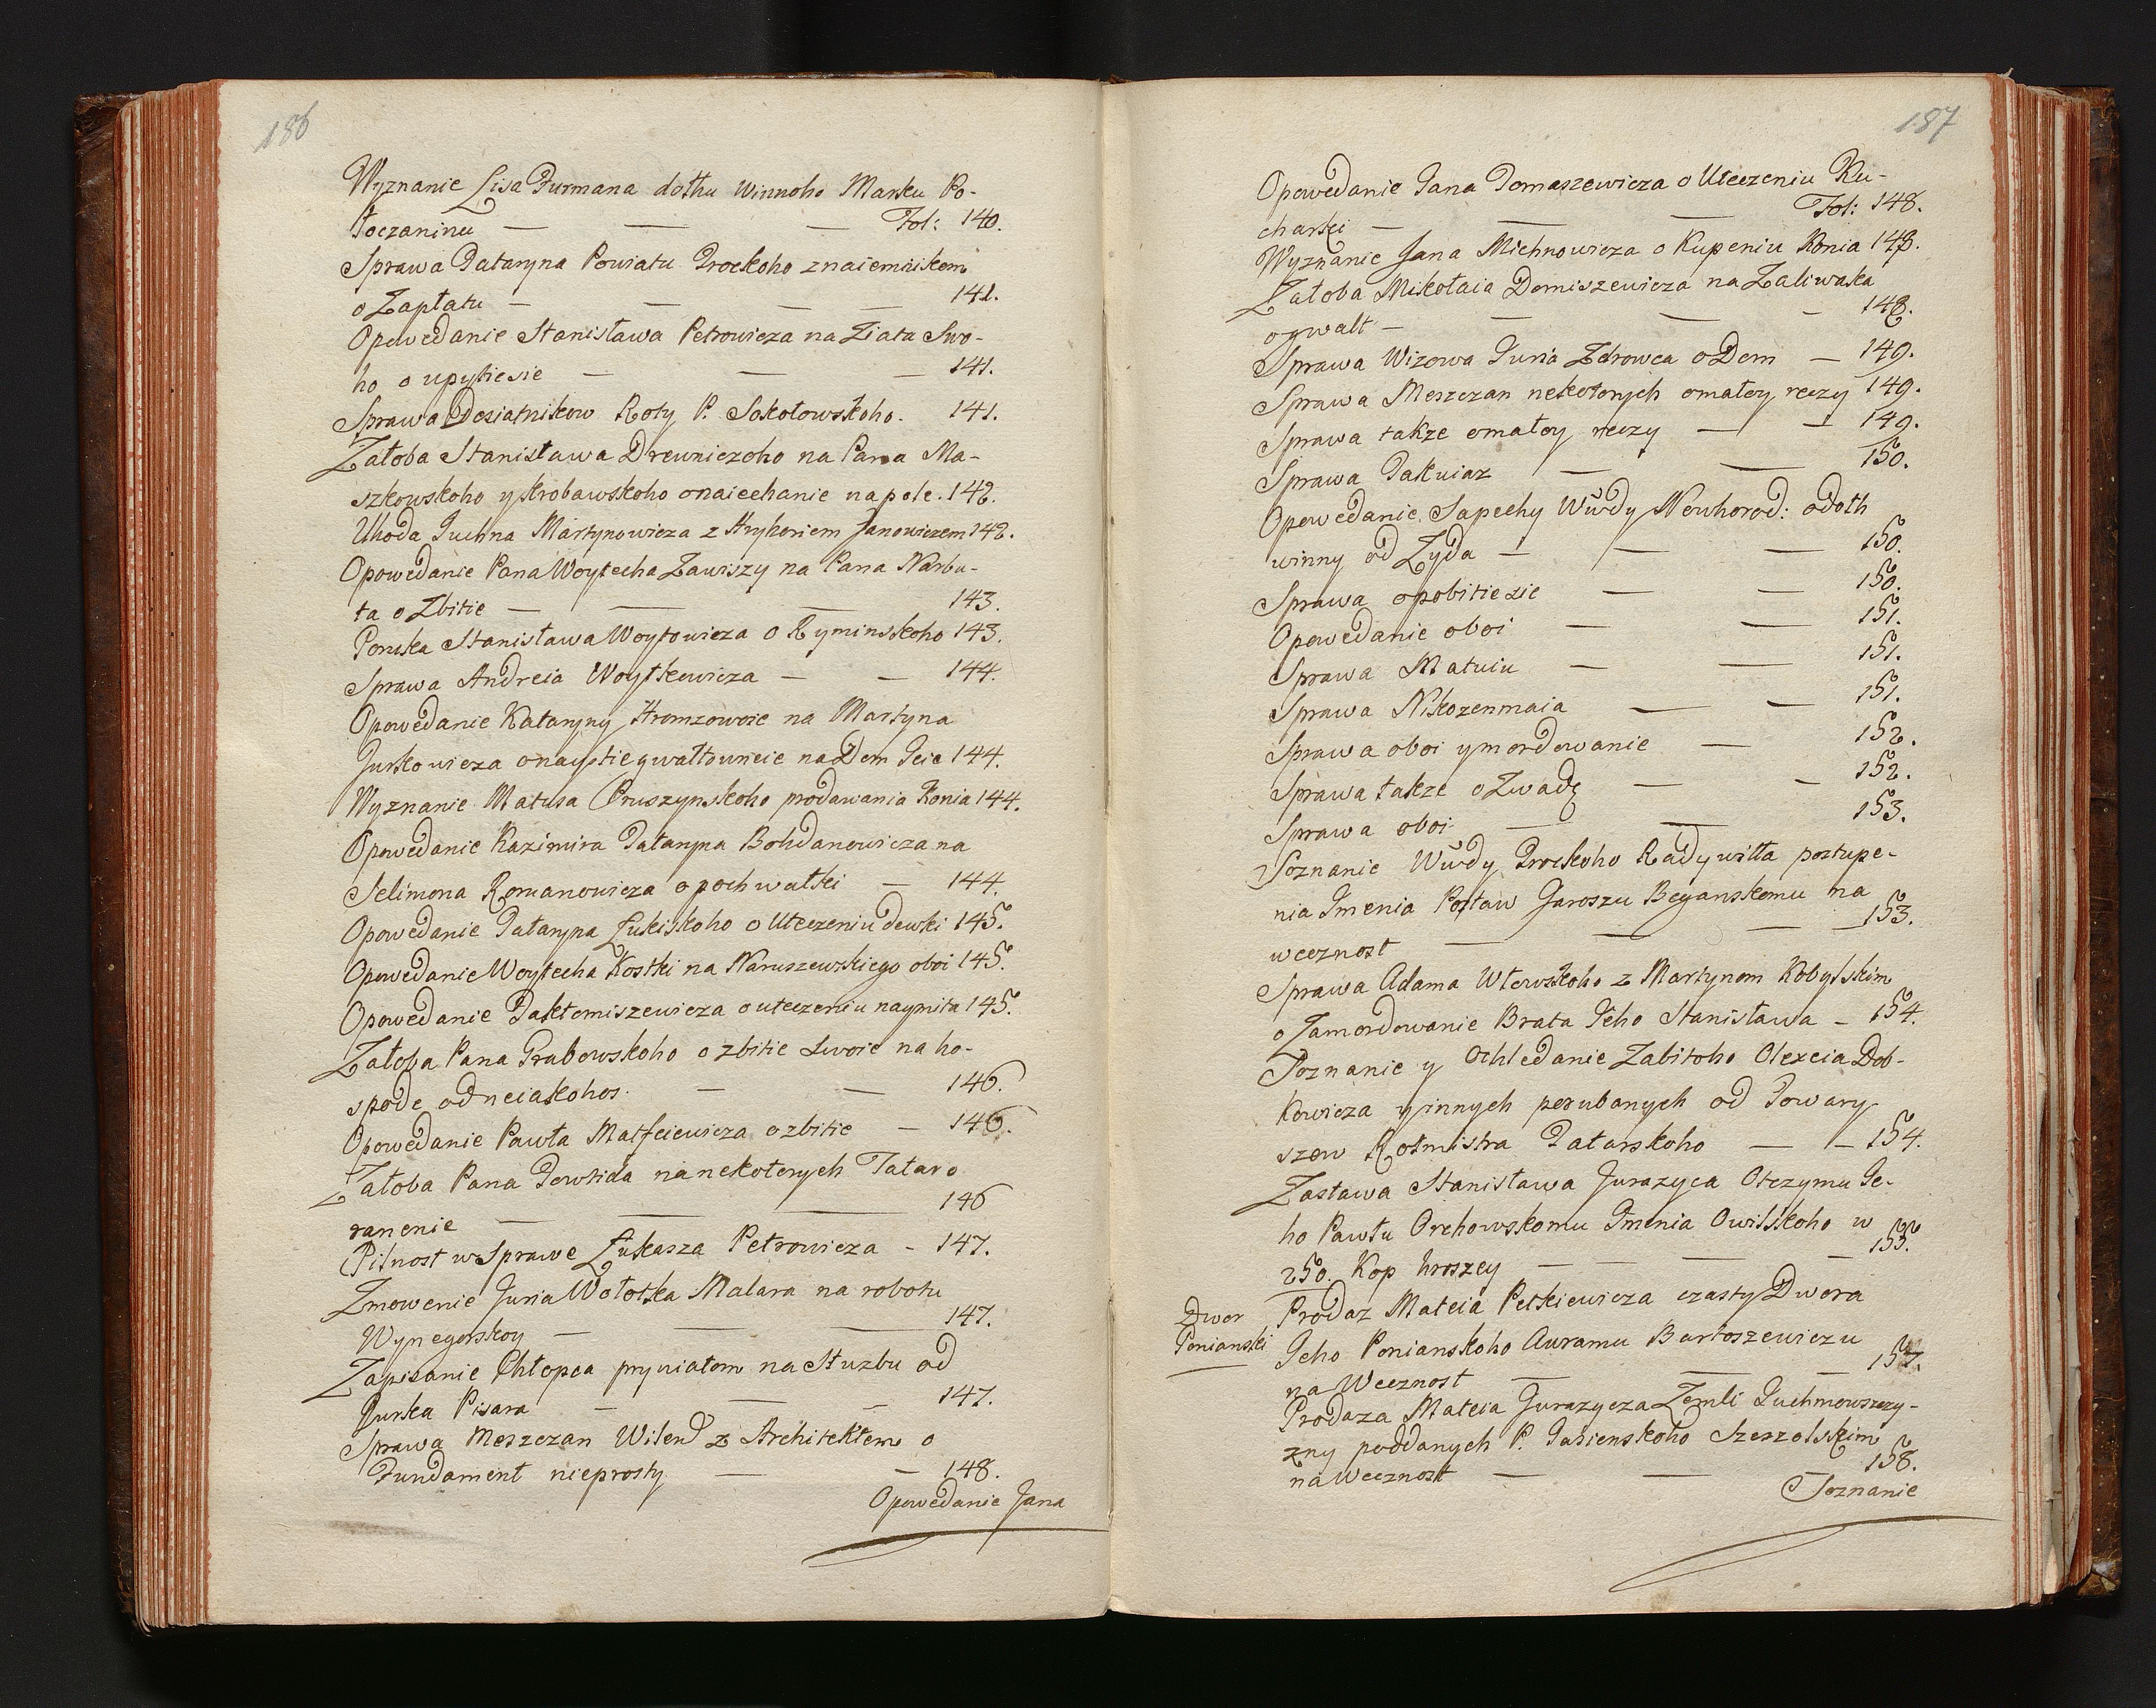 186
Wyznanie Lisa Furmana dołhu winnoho Marku Po-
łoczaninu — — — Fol: 140.
Sprawa Tataryna Powiatu Trockoho z naiemnikom
o Zapłatu — — — 141.
Opowedanie Stanisława Petrowicza na Ziata Swo-
ho o upytiesie — — — 141.
Sprawa Desiatnikow Roty P. Sokołowskoho. 141.
Załoba Stanisława Drewniczoho na Pana Ma-
szkowskoho y Skrobawskoho o naiechanie na pole. 142.
Uhoda Juchna Martynowicza z Hryhoriem Janowiczem 142.
Opowedanie Pana Woytecha Zawiszy na Pana Narbu-
ta o Zbitie — — — 143.
Poruka Stanisława Woytowicza o Ryminskoho 143.
Sprawa Andreia Woytkewicza — — 144.
Opowedanie Kataryny Hromzowoie na Martyna
Jurkowicza o nayſtie gwałtowneie na Dom Jeie 144.
Wyznanie Matusa Pruszynskoho prodawania Konia 144.
Opowedanie Kazimira Tataryna Bohdanowicza na
Selimona Romanowicza o pochwałki — 144.
Opowedanie Tataryna Łukiskoho o Uteczeniu dewki 145.
Opowedanie Woytecha Kostki na Naruszewskiego oboi 145.
Opowedanie Taktomiszewicza o uteczeniu naymita 145.
Załoba Pana Grabowskoho o zbitie Swoie na ho-
spode od neiakohos. — — 146.
Opowedanie Pawła Matfeiewicza o zbitie — 146.
Załoba Pana Dowhida na nekotorych Tatar o
ranenie — — — 146
Pilnost w Sprawe Łukasza Petrowicza - 147.
Zmowenie Juria Wołotka Malara na robotu
Wynegorskoy — — — 147.
Zapisanie Chłopca pryniatom na Służbu od
Jurka Pisara — — — 147.
Sprawa Meszczan Wilend z Architektem o
Fundament nieprosty — — 148.
Opowedanie Jana
187
Opowedanie Jana Tomaszewicza o Uteczeniu Ku-
charki — — — Fol: 148.
Wyznanie Jana Michnowicza o Kupeniu Konia 148.
Załoba Mikołaia Domiszewicza na Zaliwaka
o gwalt — — — - 148.
Sprawa Wizowa Juria Zdrowca o Dom — 149.
Sprawa Meszczan nekotorych o małoy reczy 149.
Sprawa takze o małoy reczy — — 149.
Sprawa Takuiaz — — 150.
Opowedanie Sapehy Wŭdy Nowhorod: o doth
winny od Zyda — — — 150.
Sprawa o pobitie zie — — 150.
Opowedanie oboi — — 151.
Sprawa Matuiu — — 151.
Sprawa Nikozenmaia — — 151.
Sprawa oboi y mordowanie — 152.
Sprawa takze o Zwadę — - 152.
Sprawa oboi — — 153.
Soznanie Wŭdy Trockoho Radywiłła poztupe-
nia Jmenia Poſtaw Jaroszu Beganskomu na
wecznost — — — 153.
Sprawa Adama Wtowskoho z Martynom Kobylskim
o Zamordowanie Brata Jeho Stanisława - 154.
Soznanie y Ochledanie Zabitoho Olexeia Dob-
kowicza y innych porubanych od Towary-
szow Rotmistra Tatarskoho — - 154.
Zastawa Stanisława Jurazyca Otczymu Je-
ho Pawłu Orehowskomu Jmenia Owilskoho w
250. Kop hroszey — — — 155.
Dwor
Ponianski
Prodaz Mateia Petkiewicza czasty Dwora
Jeho Ponianskoho Auramu Bartoszewiczu
na Wecznost — — - 157.
Prodaza Mateia Jurazycza Zemli Juchnowszczy-
zny poddanych P. Jasienskoho Szeszolskim
na Wecznost — — - 158.
Soznanie